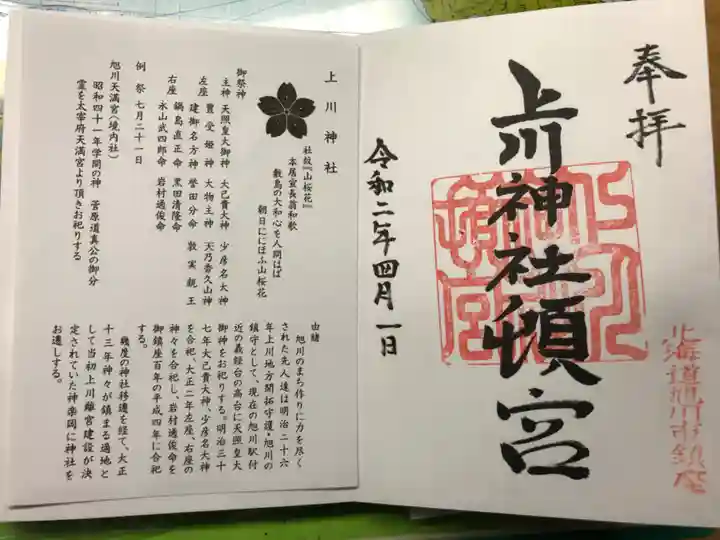 北海道旭川市鎮座
奉拝
上川神社頓宮
上川頓宮
令和二年四月一日
上川神社
社紋『山桜花』
本居宣長翁和歌
敷島の大和心を人問はば
朝日ににほふ山桜花
御祭神
主神 天照皇大御神 大己貴大神 少彦名大神
左座 豊受姫神 大物主神 天乃香久山神
建御名方神 誉田分命 敦実親王
右座 鍋島直正命 黒田清隆命
永山武四郎命 岩村通俊命
例祭 七月二十一日
旭川天満宮(境内社)
昭和四十一年学問の神 菅原道真公の御分
霊を太宰府天満宮より頂きお祀りする
由緒
旭川のまち作りに力を尽く
された先人達は明治二十六
年上川地方開拓守護、旭川の
鎮守として、現在の旭川駅付
近の義経台の高台に天照皇大
御神をお祀りする。明治三十
七年大己貴大神、少彦名大神
を合祀、大正二年左座、右座の
神々を合祀し、岩村通俊命を
御鎮座百年の平成四年に合祀
する。
幾度の神社移遷を経て、大正
十三年神々が鎮まる適地と
して当初上川離宮建設が決
定されていた神楽岡に神社を
お遷しする。